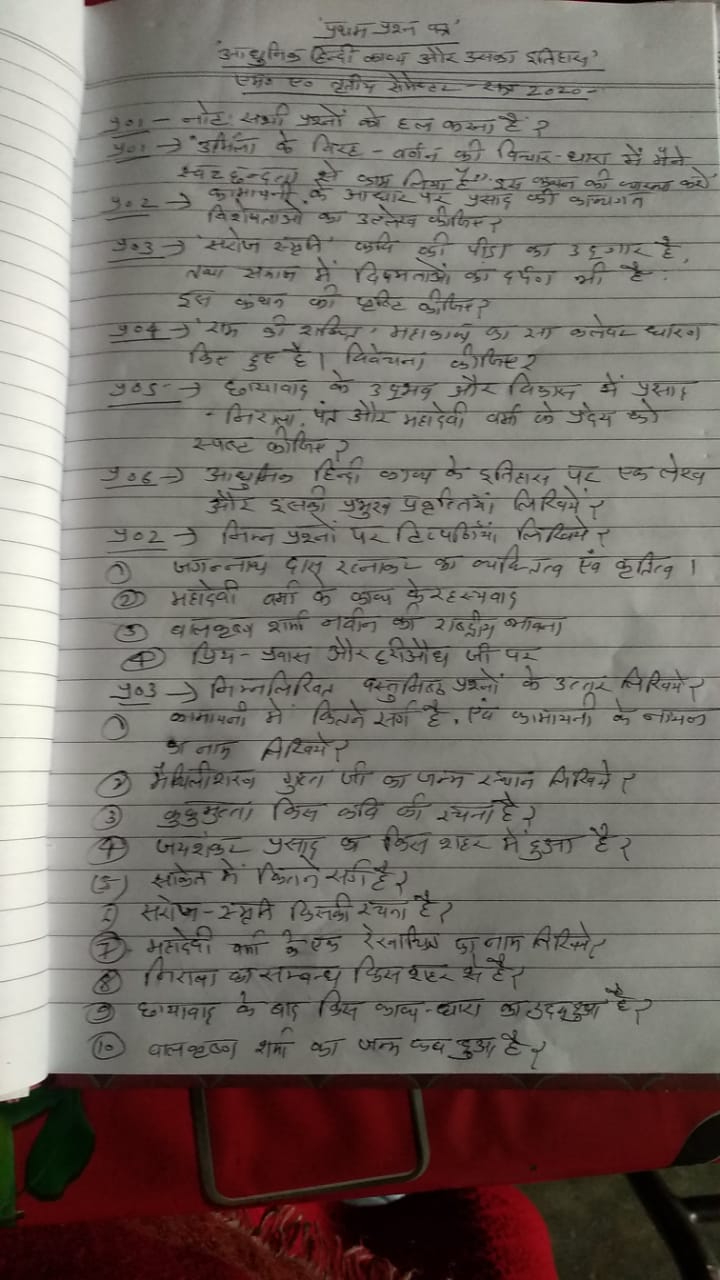 प्रथम प्रश्न पत्र
'आधुनिक हिन्दी काव्य और उसका इतिहास'
एम० ए० तृतीय सेमेस्टर - सत्र 2020-
प्र०1 - नोट: सभी प्रश्नों को हल करना है ?
प्र०1 → "उर्मिला के विरह - वर्णन की विचार-धारा में मैंने
स्वच्छन्दता से काम लिया है" इस कथन की व्याख्या करें
प्र०2 → कामायनी के आधार पर प्रसाद की काव्यगत
विशेषताओं का उल्लेख कीजिए ?
प्र०3 → 'सरोज स्मृति' कवि की पीड़ा का उद्गार है,
तथा समाज में विषमताओं का दर्पण भी है
इस कथन की पुष्टि कीजिए ?
प्र०4 → 'राम की शक्ति' महाकाव्य का सा कलेवर धारण
किए हुए है। विवेचना कीजिए ?
प्र०5 → छायावाद के उद्भव और विकास में प्रसाद
- निराला, पंत और महादेवी वर्मा के प्रदेय को
स्पष्ट कीजिए ?
प्र०6 → आधुनिक हिन्दी काव्य के इतिहास पर एक लेख
और इसकी प्रमुख प्रवृत्तियां लिखिये ?
प्र०2 → निम्न प्रश्नों पर टिप्पणियां लिखिये ?
① जगन्नाथ दास रत्नाकर का व्यक्तित्व एवं कृतित्व ।
② महादेवी वर्मा के काव्य के रहस्यवाद
③ बालकृष्ण शर्मा नवीन की राष्ट्रीय भावना
④ प्रिय-प्रवास और हरीऔध जी पर
प्र०3 → निम्नलिखित वस्तुनिष्ठ प्रश्नों के उत्तर लिखिये ?
① कामायनी में कितने सर्ग है, एवं कामायनी के नायक
का नाम लिखिये ?
② मैथिलीशरण गुप्त जी का जन्म स्थान लिखिये ?
③ कुकुरमुत्ता किस कवि की रचना है ?
④ जयशंकर प्रसाद का किस शहर में हुआ है ?
(5) साकेत में कितने सर्ग है ?
सरोज-स्मृति किसकी रचना है ?
⑦ महादेवी वर्मा के एक रेखाचित्र का नाम लिखिये ?
⑧ निराला का सम्बन्ध किस शहर से है ?
⑨ छायावाद के बाद किस काव्य-धारा का उदय हुआ है ?
⑩ बालकृष्ण शर्मा का जन्म कब हुआ है ?